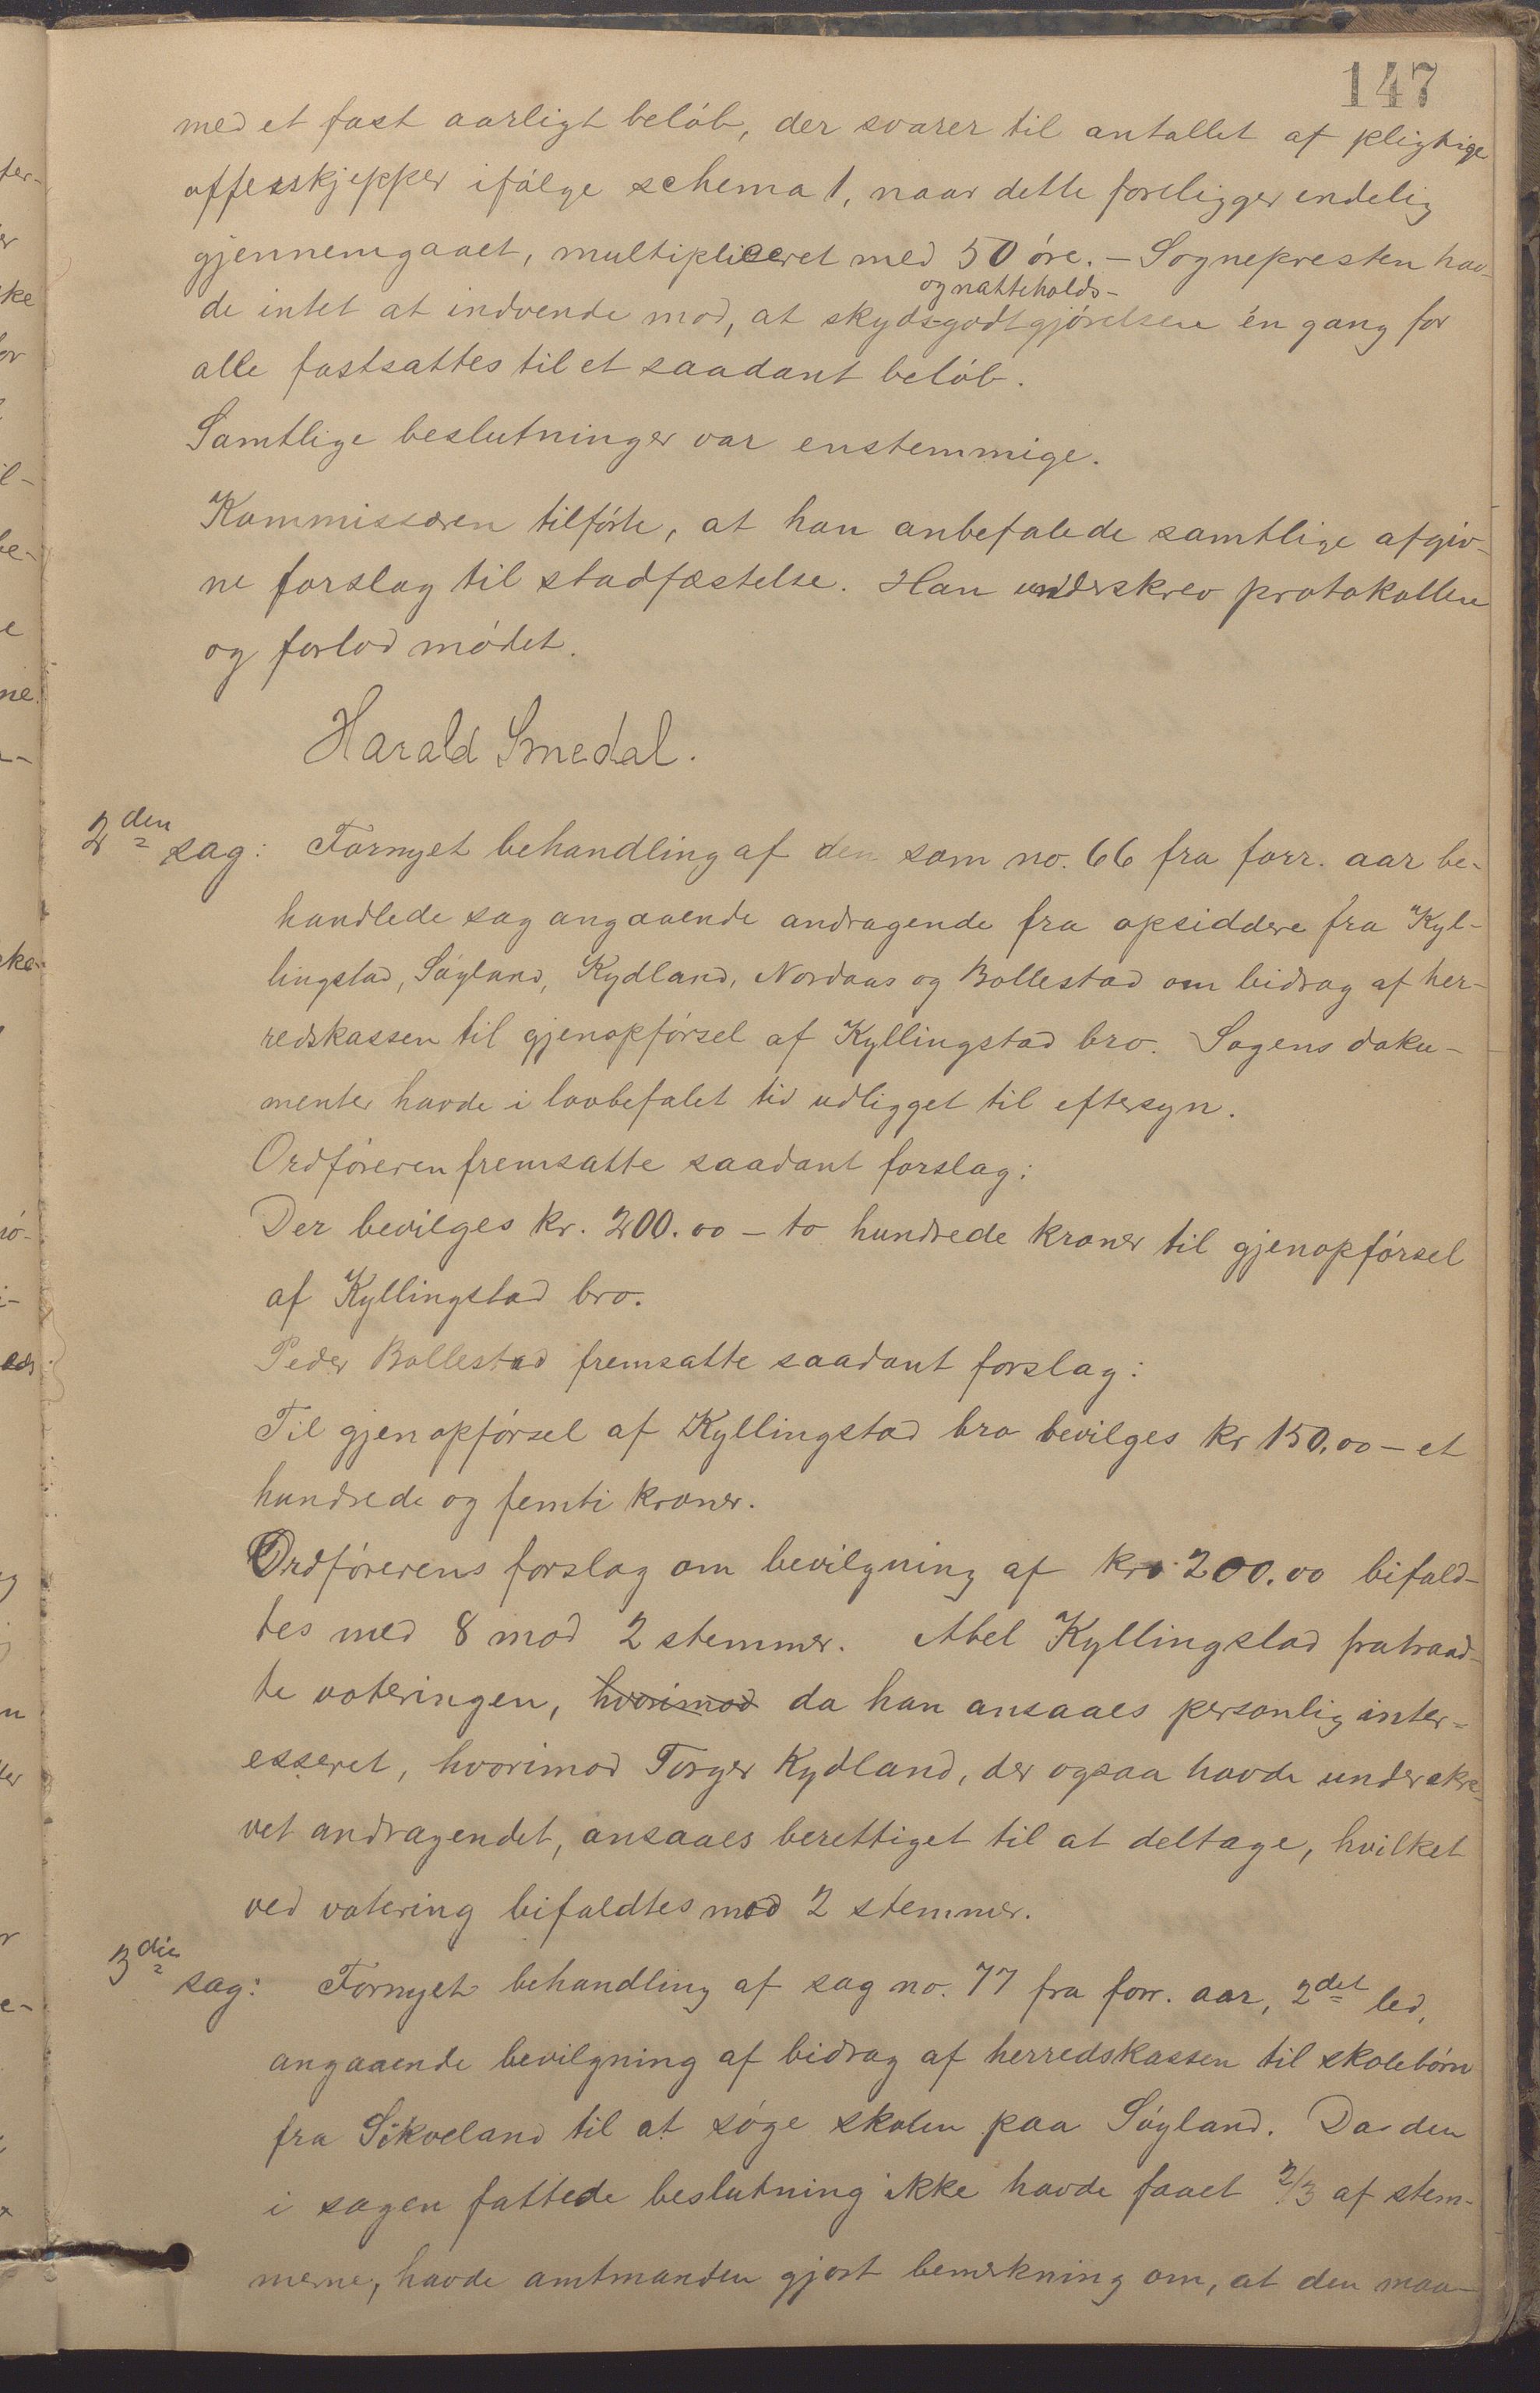 147
med et fast aarligt beløb, der svarer til antallet af pligtige
offerskjepper ifølge schema 1, naar dette foreligger endelig
gjennemgaaet, multipliceret med 50 øre. – Sognepresten hav-
og natteholds-
de intet at indvende mod, at skyds-godtgjørelsen én gang for
alle fastsattes til et saadant beløb.
Samtlige beslutninger var enstemmige.
Kommissæren tilførte, at han anbefalede samtlige afgiv-
ne forslag til stadfæstelse. Han underskrev protokollen
og forlod mødet.
Harald Smedal.
2den sag: Fornyet behandling af den som no. 66 fra forr. aar be-
handlede sag angaaende andragende fra opsiddere fra Kyl-
lingstad, Søyland, Kydland, Nordaas og Bollestad om bidrag af her-
redskassen til gjenopførsel af Kyllingstad bro. Sagens doku-
menter havde i lovbefalet tid udligget til eftersyn.
Ordføreren fremsatte saadant forslag:
Der bevilges kr. 200.00 – to hundrede kroner til gjenopførsel
af Kyllingstad bro.
Peder Bollestad fremsatte saadant forslag:
Til gjenopførsel af Kyllingstad bro bevilges kr 150,00 – et
hundrede og femti kroner.
Ordførerens forslag om bevilgning af kr. 200.00 bifald-
tes med 8 mod 2 stemmer. Abel Kyllingstad fratraad-
te voteringen, hvorimod da han ansaaes personlig inter-
esseret, hvorimod Torger Kydland, der ogsaa havde underskre-
vet andragendet, ansaaes berettiget til at deltage, hvilket
ved votering bifaldtes mod 2 stemmer.
3die sag: Fornyet behandling af sag no. 77 fra forr. aar, 2det led,
angaaende bevilgning af bidrag af herredskassen til skolebørn
fra Sikveland til at søge skolen paa Søyland. Da den
i sagen fattede beslutning ikke havde faaet 2/3 af stem-
merne, havde amtmanden gjort bemerkning om, at den maa-